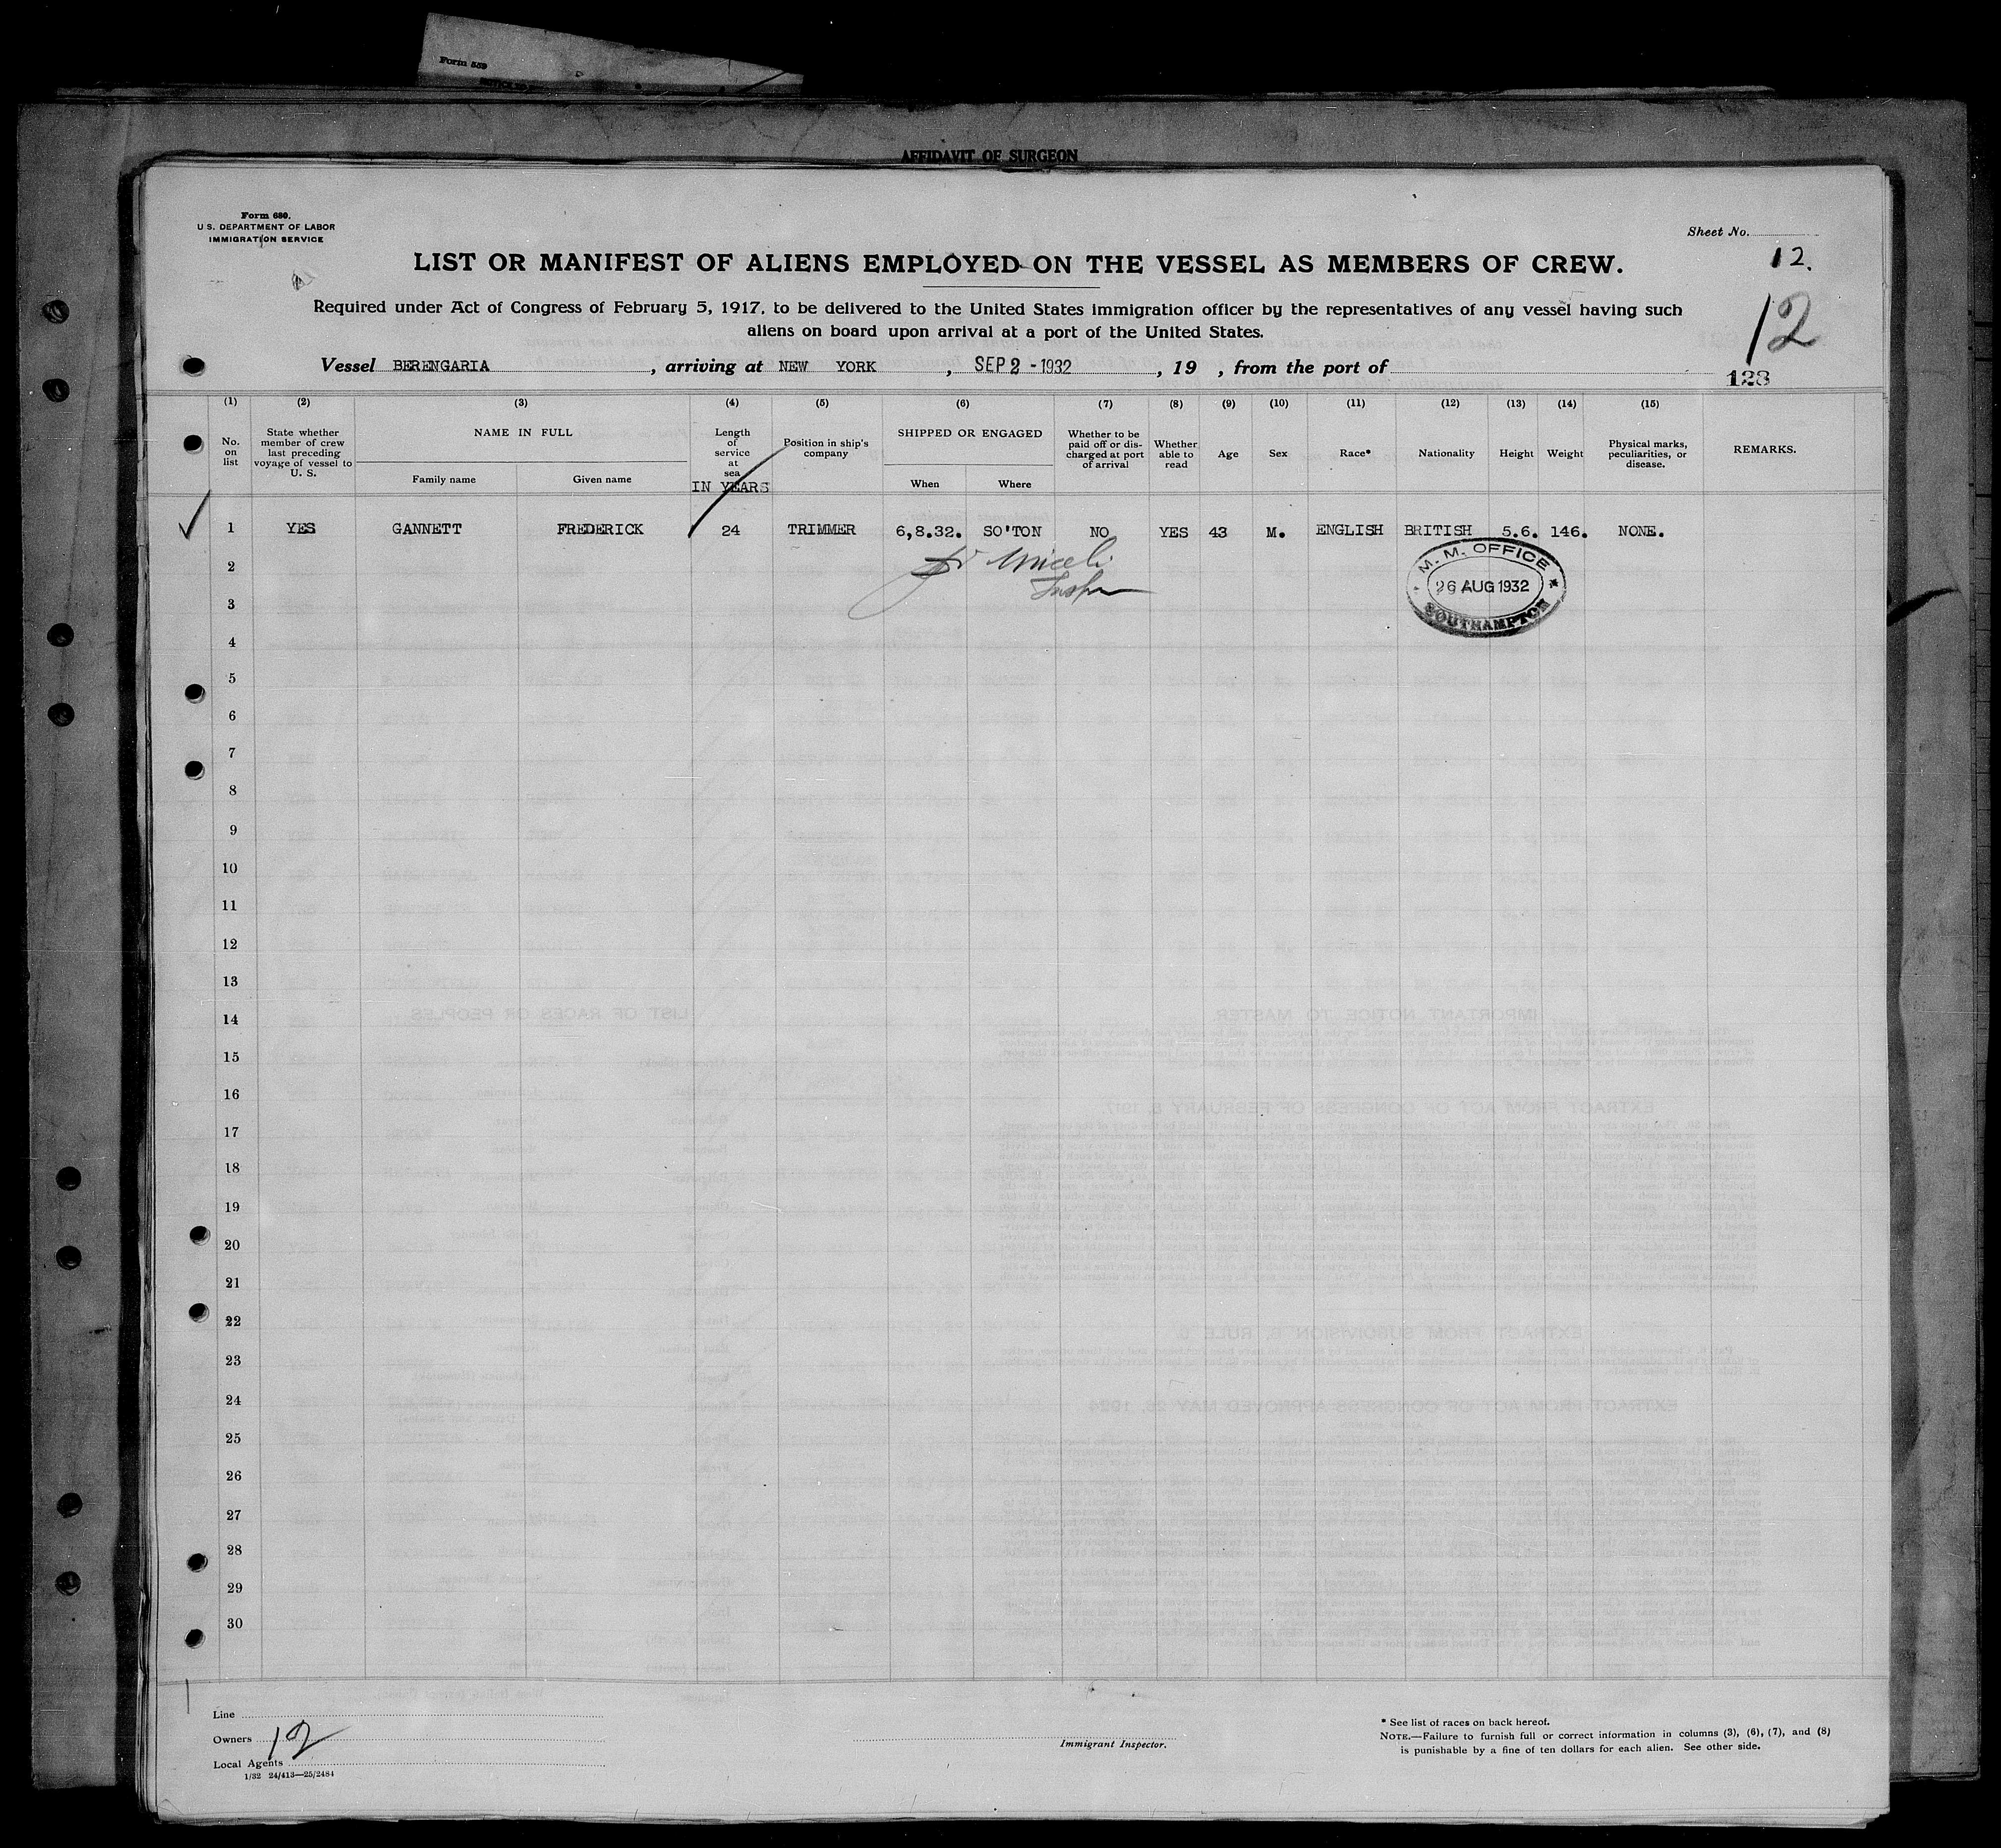 Form 559
AFFIDAVIT OF SURGEON
Form 680.
U. S. DEPARTMENT OF LABOR
IMMIGRATION SERVICE
Sheet No.
12.
LIST OR MANIFEST OF ALIENS EMPLOYED ON THE VESSEL AS MEMBERS OF CREW.
Required under Act of Congress of February 5, 1917, to be delivered to the United States immigration officer by the representatives of any vessel having such
aliens on board upon arrival at a port of the United States.
12
Vessel BERENGARIA, arriving at NEW YORK, SEP 2 - 1932, 19 , from the port of
128
(1) (2) (3) (4) (5) (6) (7) (8) (9) (10) (11) (12) (13) (14) (15)
No. on list
State whether member of crew last preceding voyage of vessel to U. S.
NAME IN FULL
Family name
Given name
Length of service at sea
IN YEARS
Position in ship's company
SHIPPED OR ENGAGED
When
Where
Whether to be paid off or discharged at port of arrival
Whether able to read
Age
Sex
Race*
Nationality
Height
Weight
Physical marks, peculiarities, or disease.
REMARKS.
1 YES GANNETT FREDERICK 24 TRIMMER 6,8.32. SO'TON NO YES 43 M. ENGLISH BRITISH 5.6. 146. NONE.
M. M. OFFICE
26 AUG 1932
SOUTHAMPTON
2
3
4
5
6
7
8
9
10
11
12
13
14
15
16
17
18
19
20
21
22
23
24
25
26
27
28
29
30
Line
Owners
12
Local Agents
1/32 24/413—25/2484
Immigrant Inspector.
* See list of races on back hereof.
NOTE.—Failure to furnish full or correct information in columns (3), (6), (7), and (8)
is punishable by a fine of ten dollars for each alien. See other side.